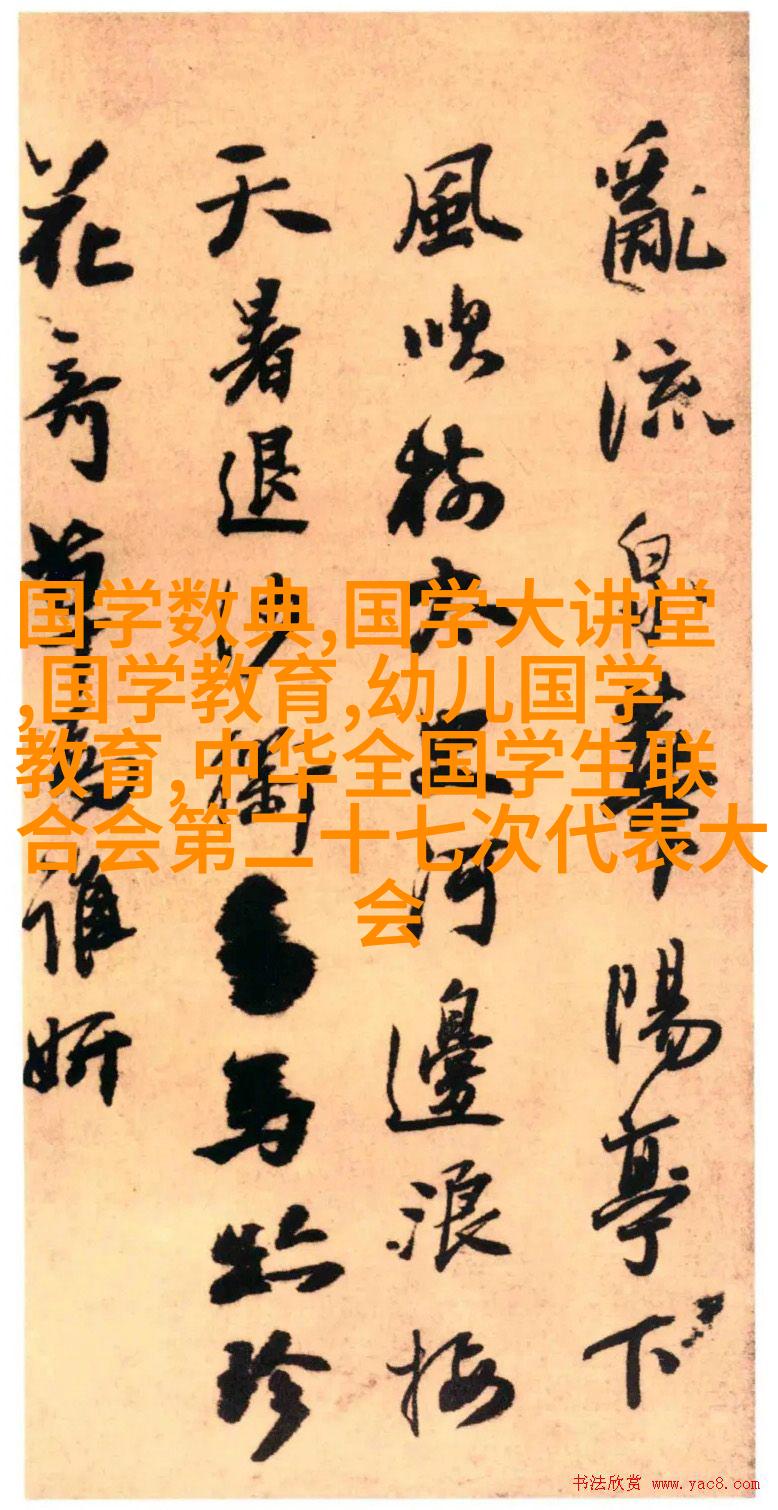 亂流皂華陽亭下
風吹樹木平河邊浪接
天暑退沙衛馬蹄珍
花奇草竟誰妍
国学数典,国学大讲堂
,国学教育,幼儿国学
教育,中华全国学生联
合会第二十七次代表大
会
书法欣赏 www.yac8.com